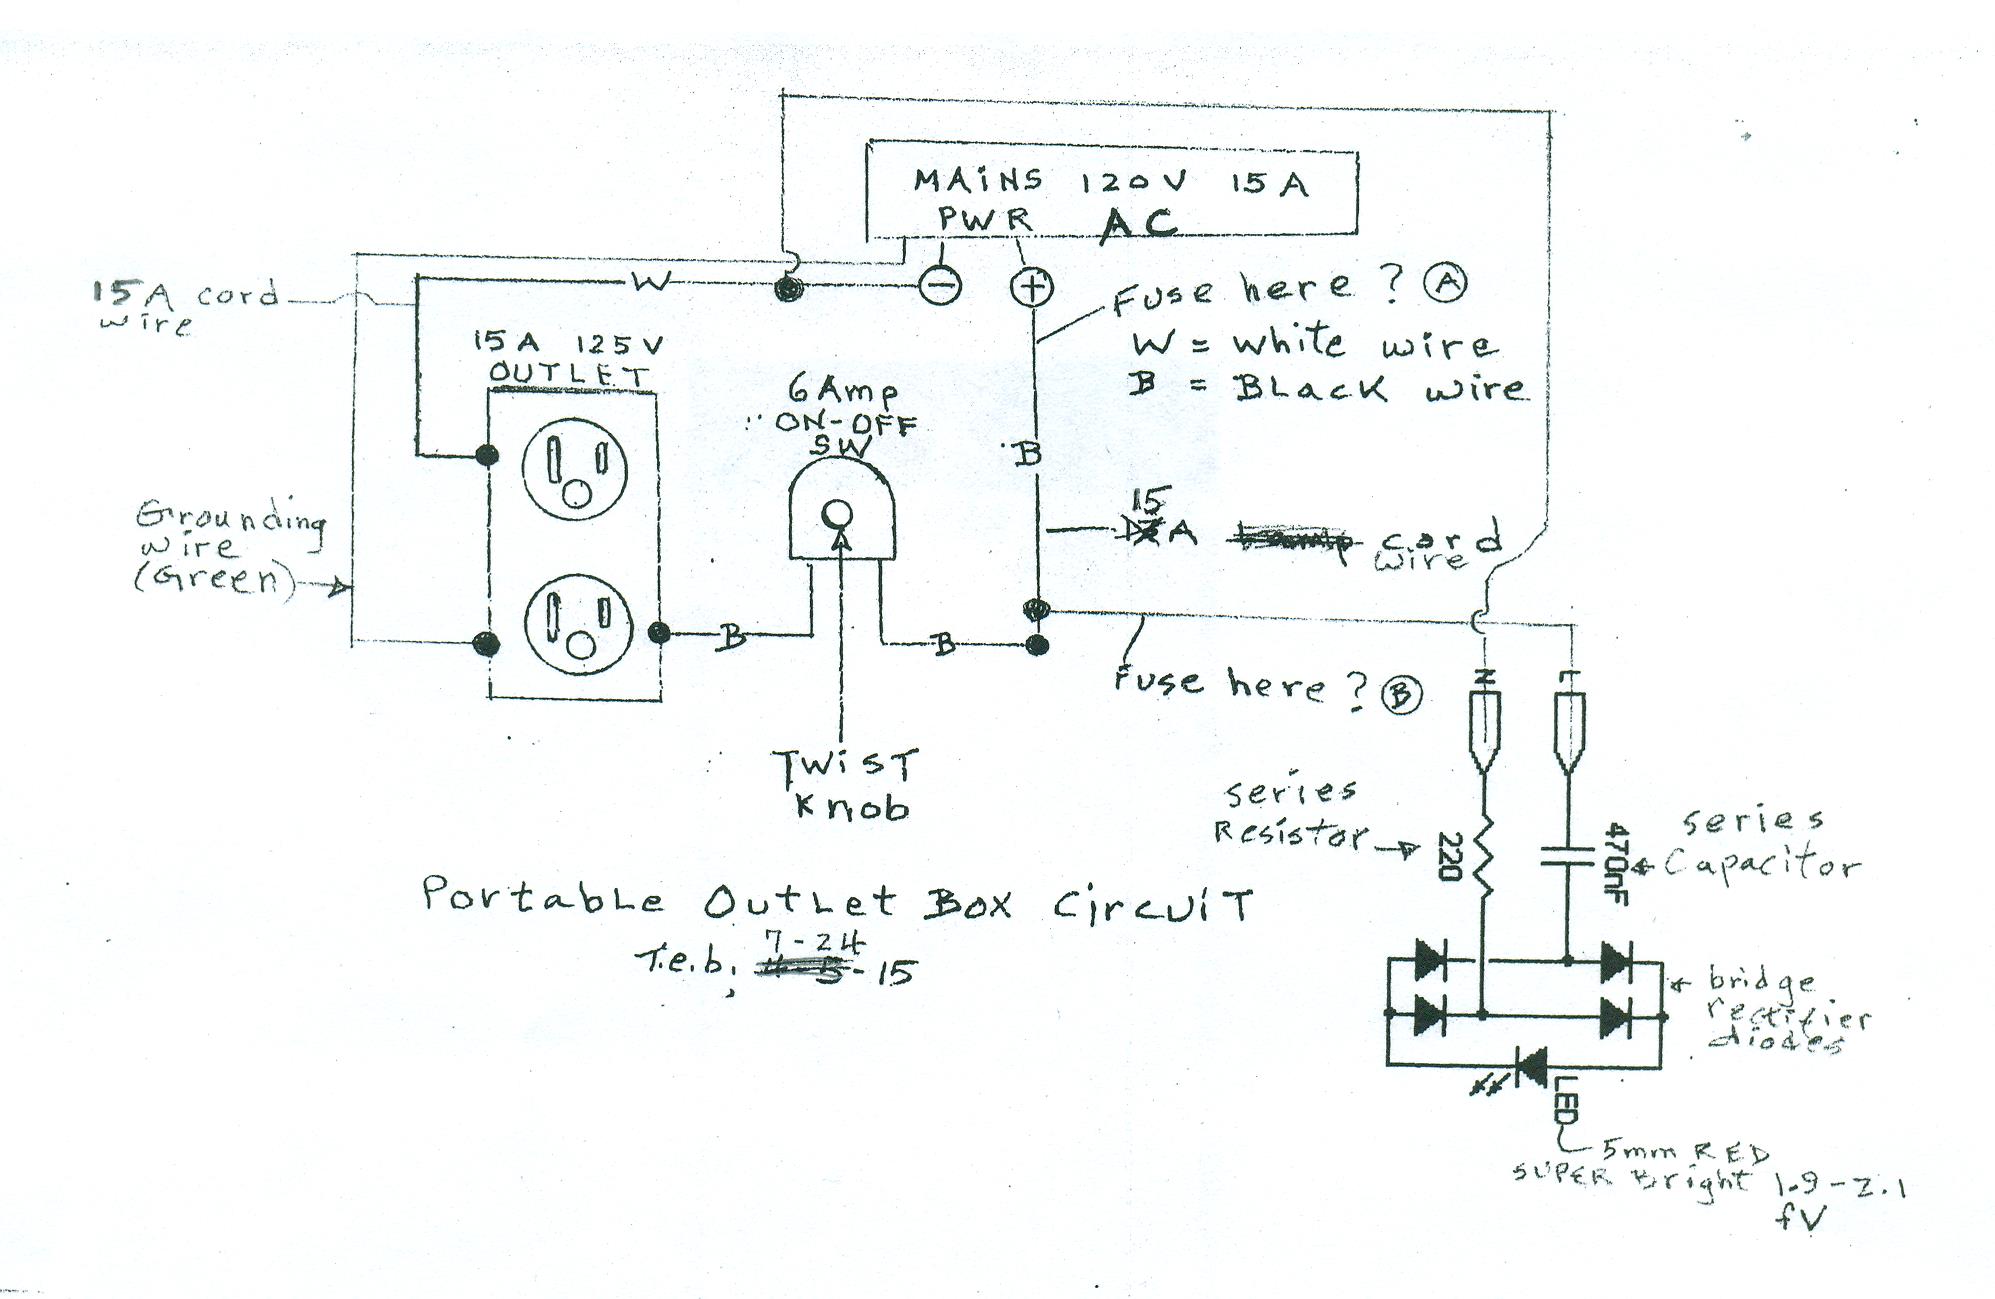 MAiNS 120V 15A
PWR AC
− +
W
15A cord
wire
Fuse here ? A
W = white wire
B = BLack wire
15A 125V
OUTLET
6 Amp
ON-OFF
SW
B
15
A cord
wire
Grounding
wire
(Green)
B
B
Fuse here ? B
N L
TWiST
Knob
series
Resistor
220
470nF
series
Capacitor
Portable Outlet Box Circuit
7-24
T.e.b. -15
bridge
rectifier
diodes
LED
5mm RED
SUPER Bright 1.9-2.1
fV